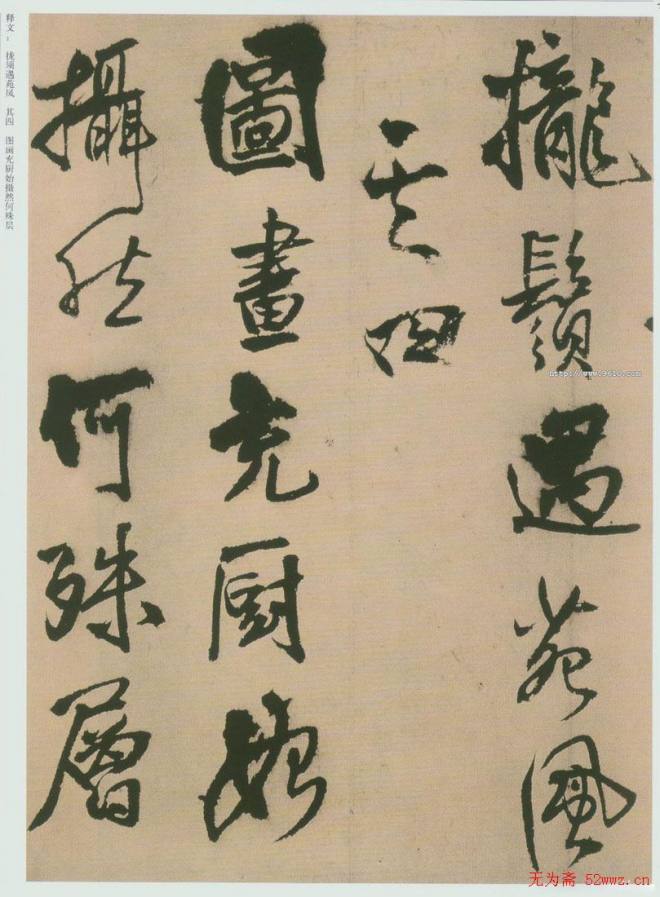 攏鬚遇苑風
其四
圖畫充厨始
攝然何殊層
释文：拢须遇苑风 其四 图画充厨始摄然何殊层
http://www.9610.com
无为斋 52wwz.cn